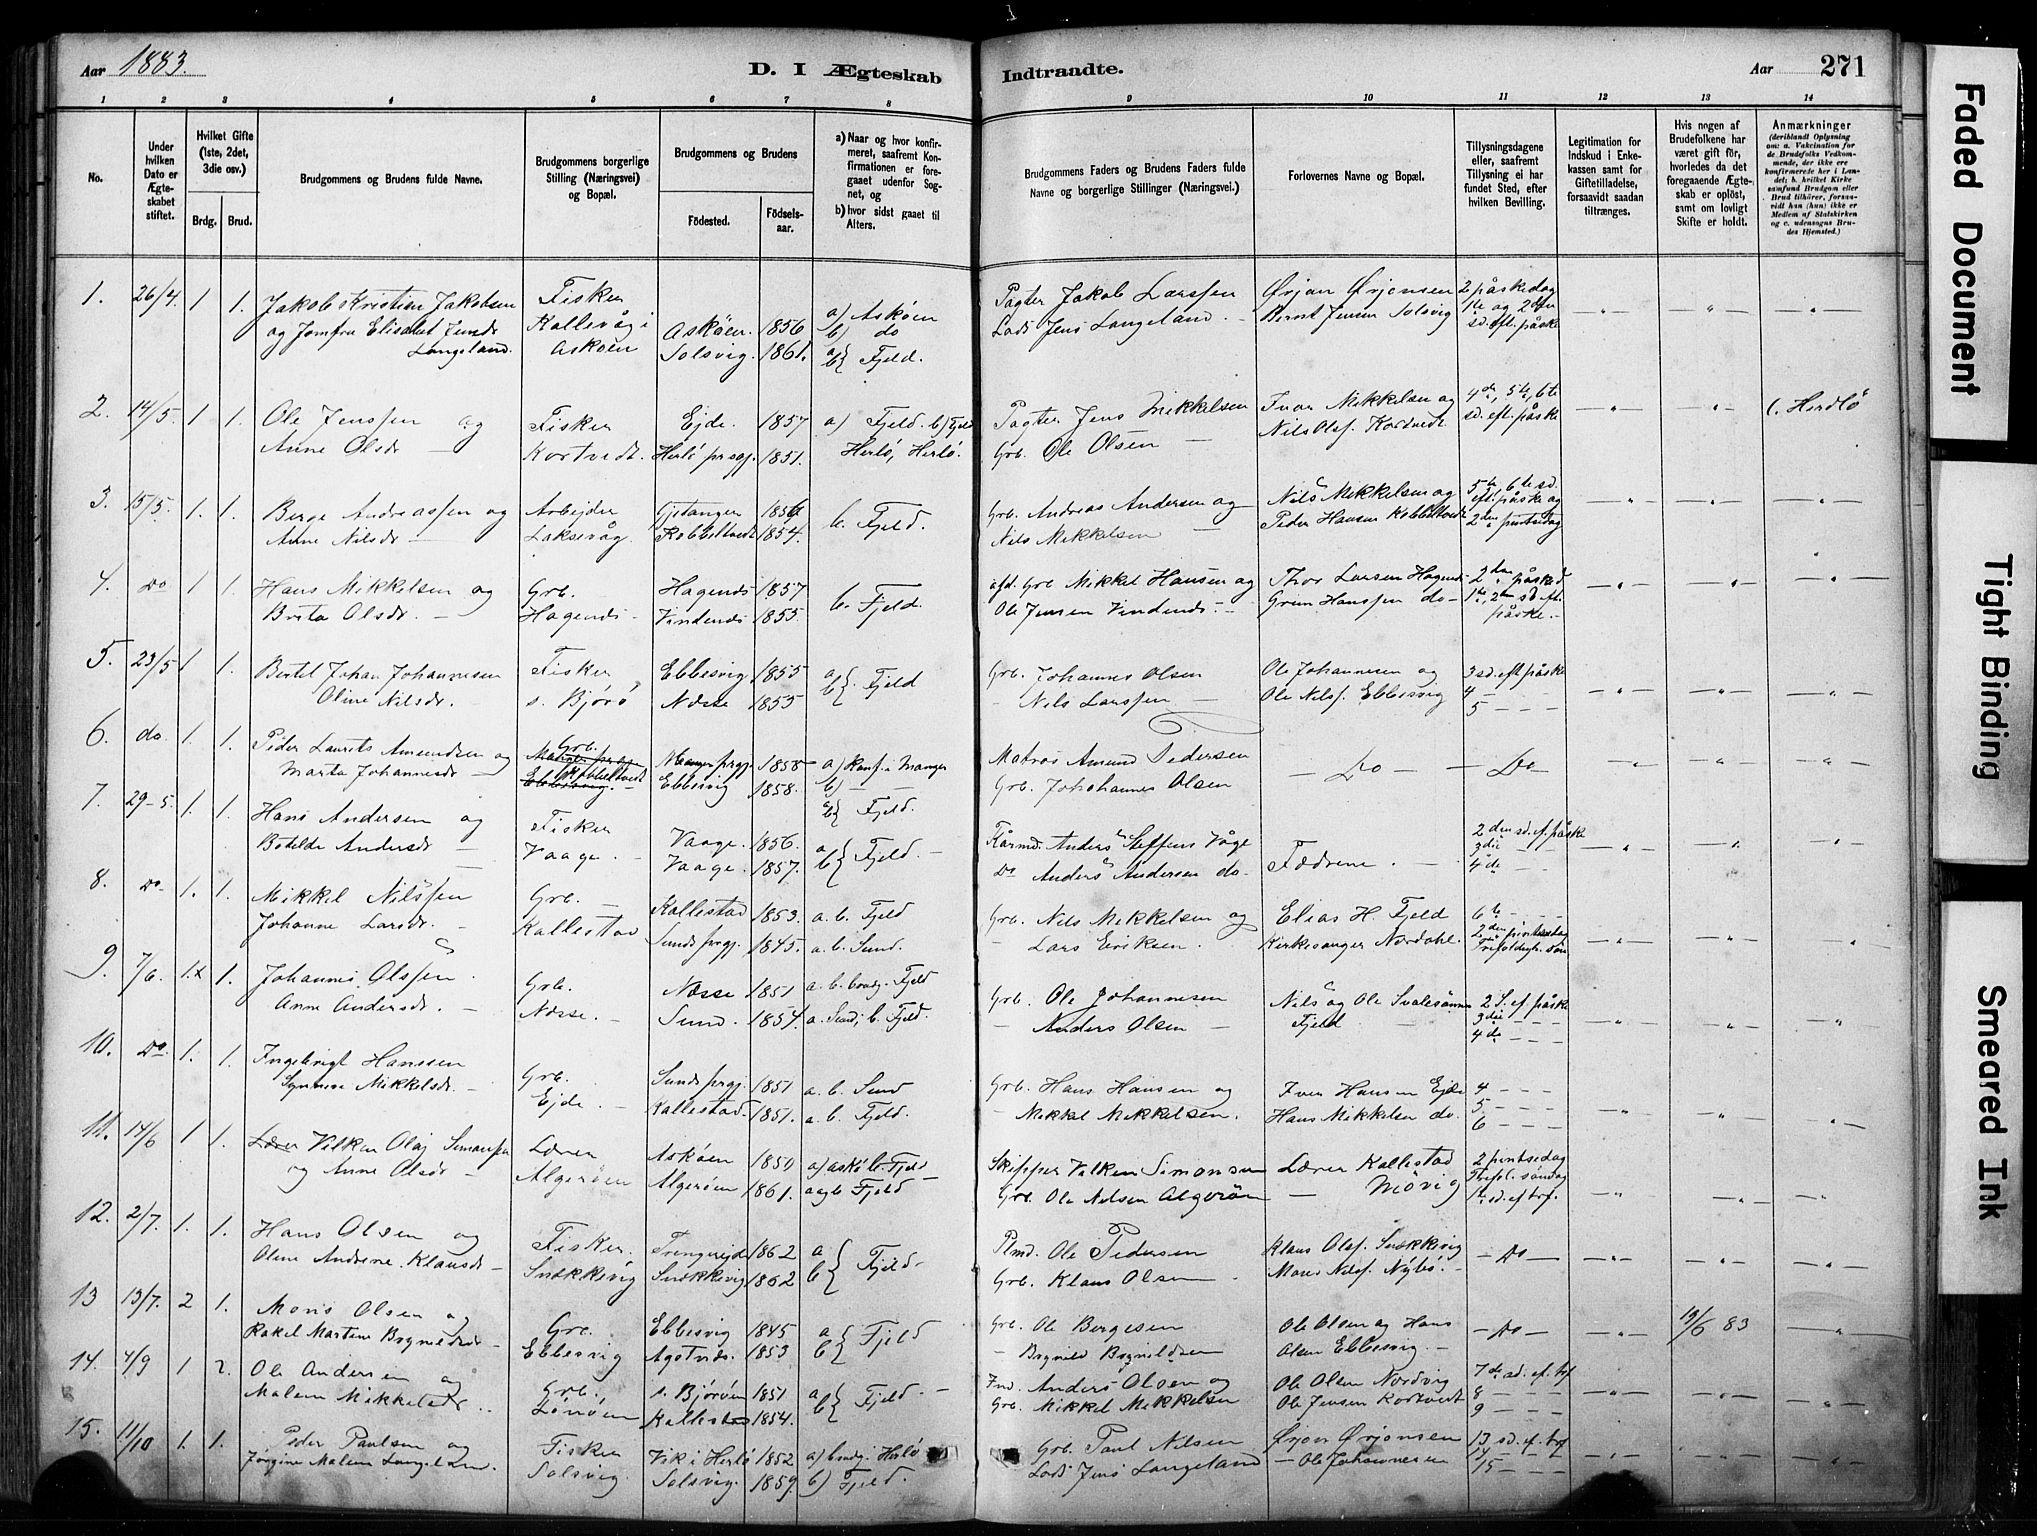 Aar 1883.
D. I Ægteskab Indtraadte.
Aar 271
1 2 3 4 5 6 7 8 9 10 11 12 13 14
No.
Under hvilken Dato er Ægteskabet stiftet.
Hvilket Gifte (1ste, 2det, 3die osv.)
Brdg. Brud.
Brudgommens og Brudens fulde Navne.
Brudgommens borgerlige Stilling (Næringsvei) og Bopæl.
Brudgommens og Brudens
Fødested. Fødselsaar.
a) Naar og hvor konfirmeret, saafremt Konfirmationen er foregaaet udenfor Sognet, og
b) hvor sidst gaaet til Alters.
Brudgommens Faders og Brudens Faders fulde Navne og borgerlige Stillinger (Næringsvei.)
Forlovernes Navne og Bopæl.
Tillysningsdagene eller, saafremt Tillysning ei har fundet Sted, efter hvilken Bevilling.
Legitimation for Indskud i Enkekassen samt for Giftetilladelse, forsaavidt saadan tiltrænges.
Hvis nogen af Brudefolkene har været gift før, hvorledes da det foregaaende Ægteskab er opløst, samt om lovligt Skifte er holdt.
Anmærkninger
(deriblandt Oplysning om: a. Vakcination for de Brudefolks Vedkommende, der ikke ere konfirmerede her i Landet; b. hvilket Kirkesamfund Brudgom eller Brud tilhører, forsaavidt han (hun) ikke er Medlem af Statskirken og c. udensogns Brudes Hjemsted.)
1. 26/4. 1 1. Jakob Kristian Jakobsen Fisker a) Askøen Pagter Jakob Larssen Ørjan Ørjensen 2 påskedag
og Jomfru Elisabet Jensdr Kallevåg i Askøen. 1856 b) do Lods Jens Langeland. Bernt Jensen Solsvig 1te og 2den
Langeland. Askøen Solsvig. 1861. a b} Fjeld. sd. eft. påske
2. 14/5. 1 1. Ole Jenssen og Fisker Ejde. 1857 a) Fjeld. b) Fjeld Pagter Jens Mikkelsen Ivar Mikkelsen og 4de, 5te, 6te (. Herdlø
Anne Olsdr Kortvedt. Herlø prgj. 1851. Herlø, Herlø. Grb. Ole Olsen Nils Olsf. Kortvedt sd. eft. påske
3. 15/5. 1. 1. Berge Andreassen og Arbejder Gjetanger 1856 b. Fjeld. Grb. Andreas Andersen og Nils Mikkelsen og 5te, 6te sd. eft. påske og
Anne Nilsdr Laksevåg. Kobbeltvedt 1854. Nils Mikkelsen Peder Hansen Kobbeltvedt 2den pintsedag
4. Do 1 1. Hans Mikkelsen og Grb. Hagenes 1857 b. Fjeld. afd. Grb. Mikkel Hansen og Thor Larsen Hagenes 2den påsked
Brita Olsdr. Hagenes Vindenes 1855. Ole Jensen Vindenes Grim Hanssen do 1te, 2den sd. eft. påske.
5. 23/5 1 1. Bertel Johan Johannesen Fisker Ebbesvig 1855 a b} Fjeld Grb. Johannes Olsen Ole Johannesen og 3 sd. eft påske
Oline Nilsdr. s. Bjørø Næsse 1855 Nils Larssen Ole Nilsf. Ebbesvig 4
5
6. do. 1. 1. Peder Laurits Amundsen og Grb. Manger prgj. 1858 a) Konf. i Manger Matros Amund Pedersen Do Do
Marta Johannesdr Kobbeltvedt Ebbesvig 1858. b) Grb. Johannes Olsen
a b} Fjeld.
7. 29-5. 1. 1. Hans Andersen og Fisker Vaage. 1856. a b} Fjeld. Anders Steffens Våge Fædrene. 2den sd. ef. påske
Botilde Andersdr Vaage. Vaage. 1857. Do Anders Andersen do. 3die
4de
8. Do. 1. 1. Mikkel Nilssen Grb. Kallestad 1853. a. b. Fjeld Grb. Nils Mikkelsen og Elias H. Fjeld 6te
Johanne Larsdr. Kallestad Sunds prgj. 1845. a. b. Sund. Lars Eriksen. Kirkesanger Nordahl. 2den pintsedag
9. 7/6. 1.x 1. Johannes Olssen Grb. Næsse 1851 Fjeld Grb. Ole Johannesen Nils og Ole 2 S. ef. påske
Anne Andersdr. Næsse. Sund. 1854. a. Sund, b. Fjeld. Anders Olsen Fjeld 3die
4de
10. Do. 1. 1. Ingebrigt Hanssen Grb. Sunds prgj. 1851 a. b. Sund Grb. Hans Hansen og Iver Hansen Ejde 4
Synneve Mikkelsdr. Ejde. Kallestad. 1851. a. b. Fjeld. Mikkel Mikkelsen. Hans Mikkelsen do. 5
6
11. 14/6 1 1. Lærer Vilken Olaj Simonsen Lærer Askøen 1850 a) Askø b. Fjeld Skipper Vilken Simonsen Lærer Kallestad 2 pintsedag
og Anne Olsdr Algerøen Algerøen 1861. a og b Fjeld Grb. Ole Nilsen Algerøen Møvig Trefol. søndag
1te sd. ef. tref.
12. 2/7. 1. 1. Hans Olsen og Fisker. Trengereide 1862 a b} Fjeld. Plmd. Ole Pedersen Klaus Olsf. Snækkevig Do
Oline Andrine Klausdr Snækkevig Snækkevig 1862 Grb. Klaus Olsen Mons Nilsf. Nybø.
13 13/7. 2 1. Mons Olsen og Grb. Ebbesvig 1845 a b} Fjeld Grb. Ole Bergesen Ole Olsen og Hans Do 19/6 83
Rakel Martine Ebbesvig Agotnes. 1853 Olsen Ebbesvig.
14. 4/9 1 2. Ole Andersen og Grb. s. Bjørøen 1851 a b} Fjeld Anders Olsen og Ole Olsen Nordvig 7de sd. ef. tref
Malene Mikkelsdr. Lønøen Kallestad 1854. Grb. Mikkel Mikkelsen Ole Jensen Kortvedt 8
9
15. 11/10 1. 1. Peder Paulsen og Fisker Vik i Herlø 1852 a) Herlø Grb. Paul Nilsen Ørjan Ørjonsen 13 sd. ef. tref
Jørgine Malene Langeland. Solsvig. Solsvig. 1859 b) Fjeld. Lods Jens Langeland Ole Johannesen 14
15
Faded Document
Tight Binding
Smeared Ink